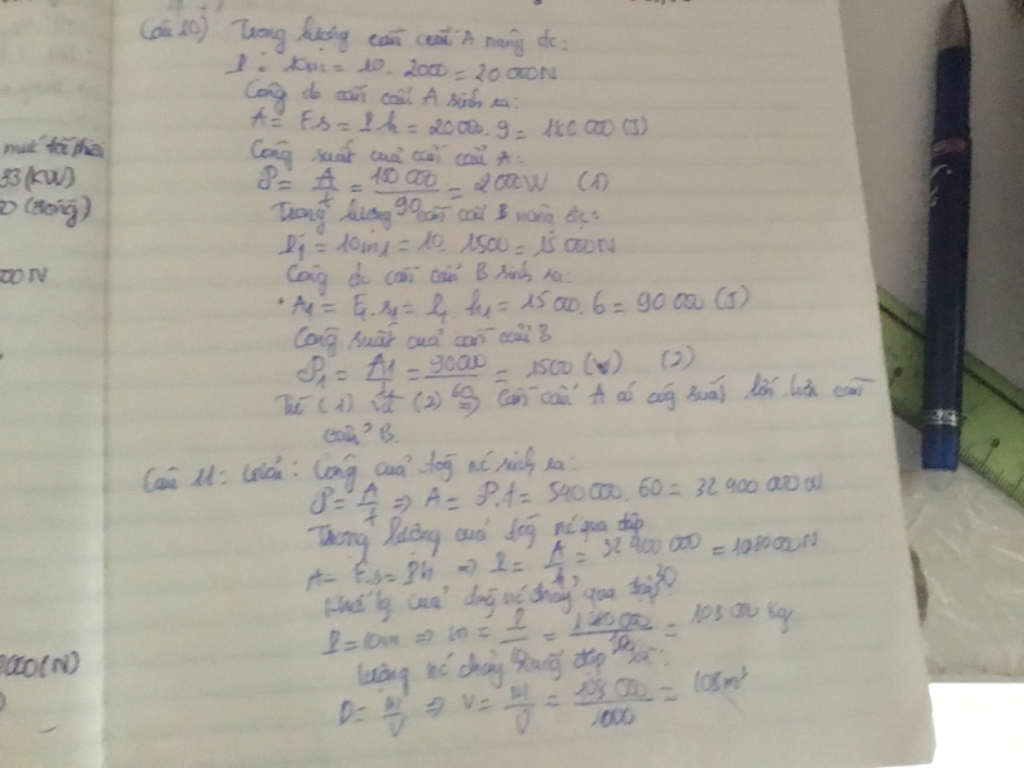 mức tối thiểu
33 (KW)
0 (đồng)
00 N
2000 (N)
Câu 10) Trọng lượng cần cẩu A nâng đc:
P = 10m = 10. 2000 = 20 000N
Công do cần cẩu A sinh ra:
A = F.s = P.h = 20 000. 9 = 180 000 (J)
Công suất của cần cẩu A:
P = A/t = 180 000/90 = 2 000W (1)
Trọng lượng cần cẩu B nâng đc:
P1 = 10m1 = 10. 1500 = 15 000N
Công do cần cẩu B sinh ra:
A1 = F1.s1 = P1.h1 = 15 000. 6 = 90 000 (J)
Công suất của cần cẩu B
P1 = A1/t = 90000/60 = 1500 (W) (2)
Từ (1) và (2) => Cần cẩu A có công suất lớn hơn cần
cẩu B.
Câu 11: Công của dòng nc sinh ra:
P = A/t => A = P.t = 540 000. 60 = 32 400 000
Trọng lượng của dòng nc qua đập
A = F.s = Ph => P = A/h = 32 400 000/30 = 1080000N
Khối lg của dòng nc chảy qua đập
P = 10m => m = P/10 = 1080 000/10 = 108 000 Kg
Lượng nc chảy xuống đập
D = m/V => V = m/D = 108 000/1000 = 108m³